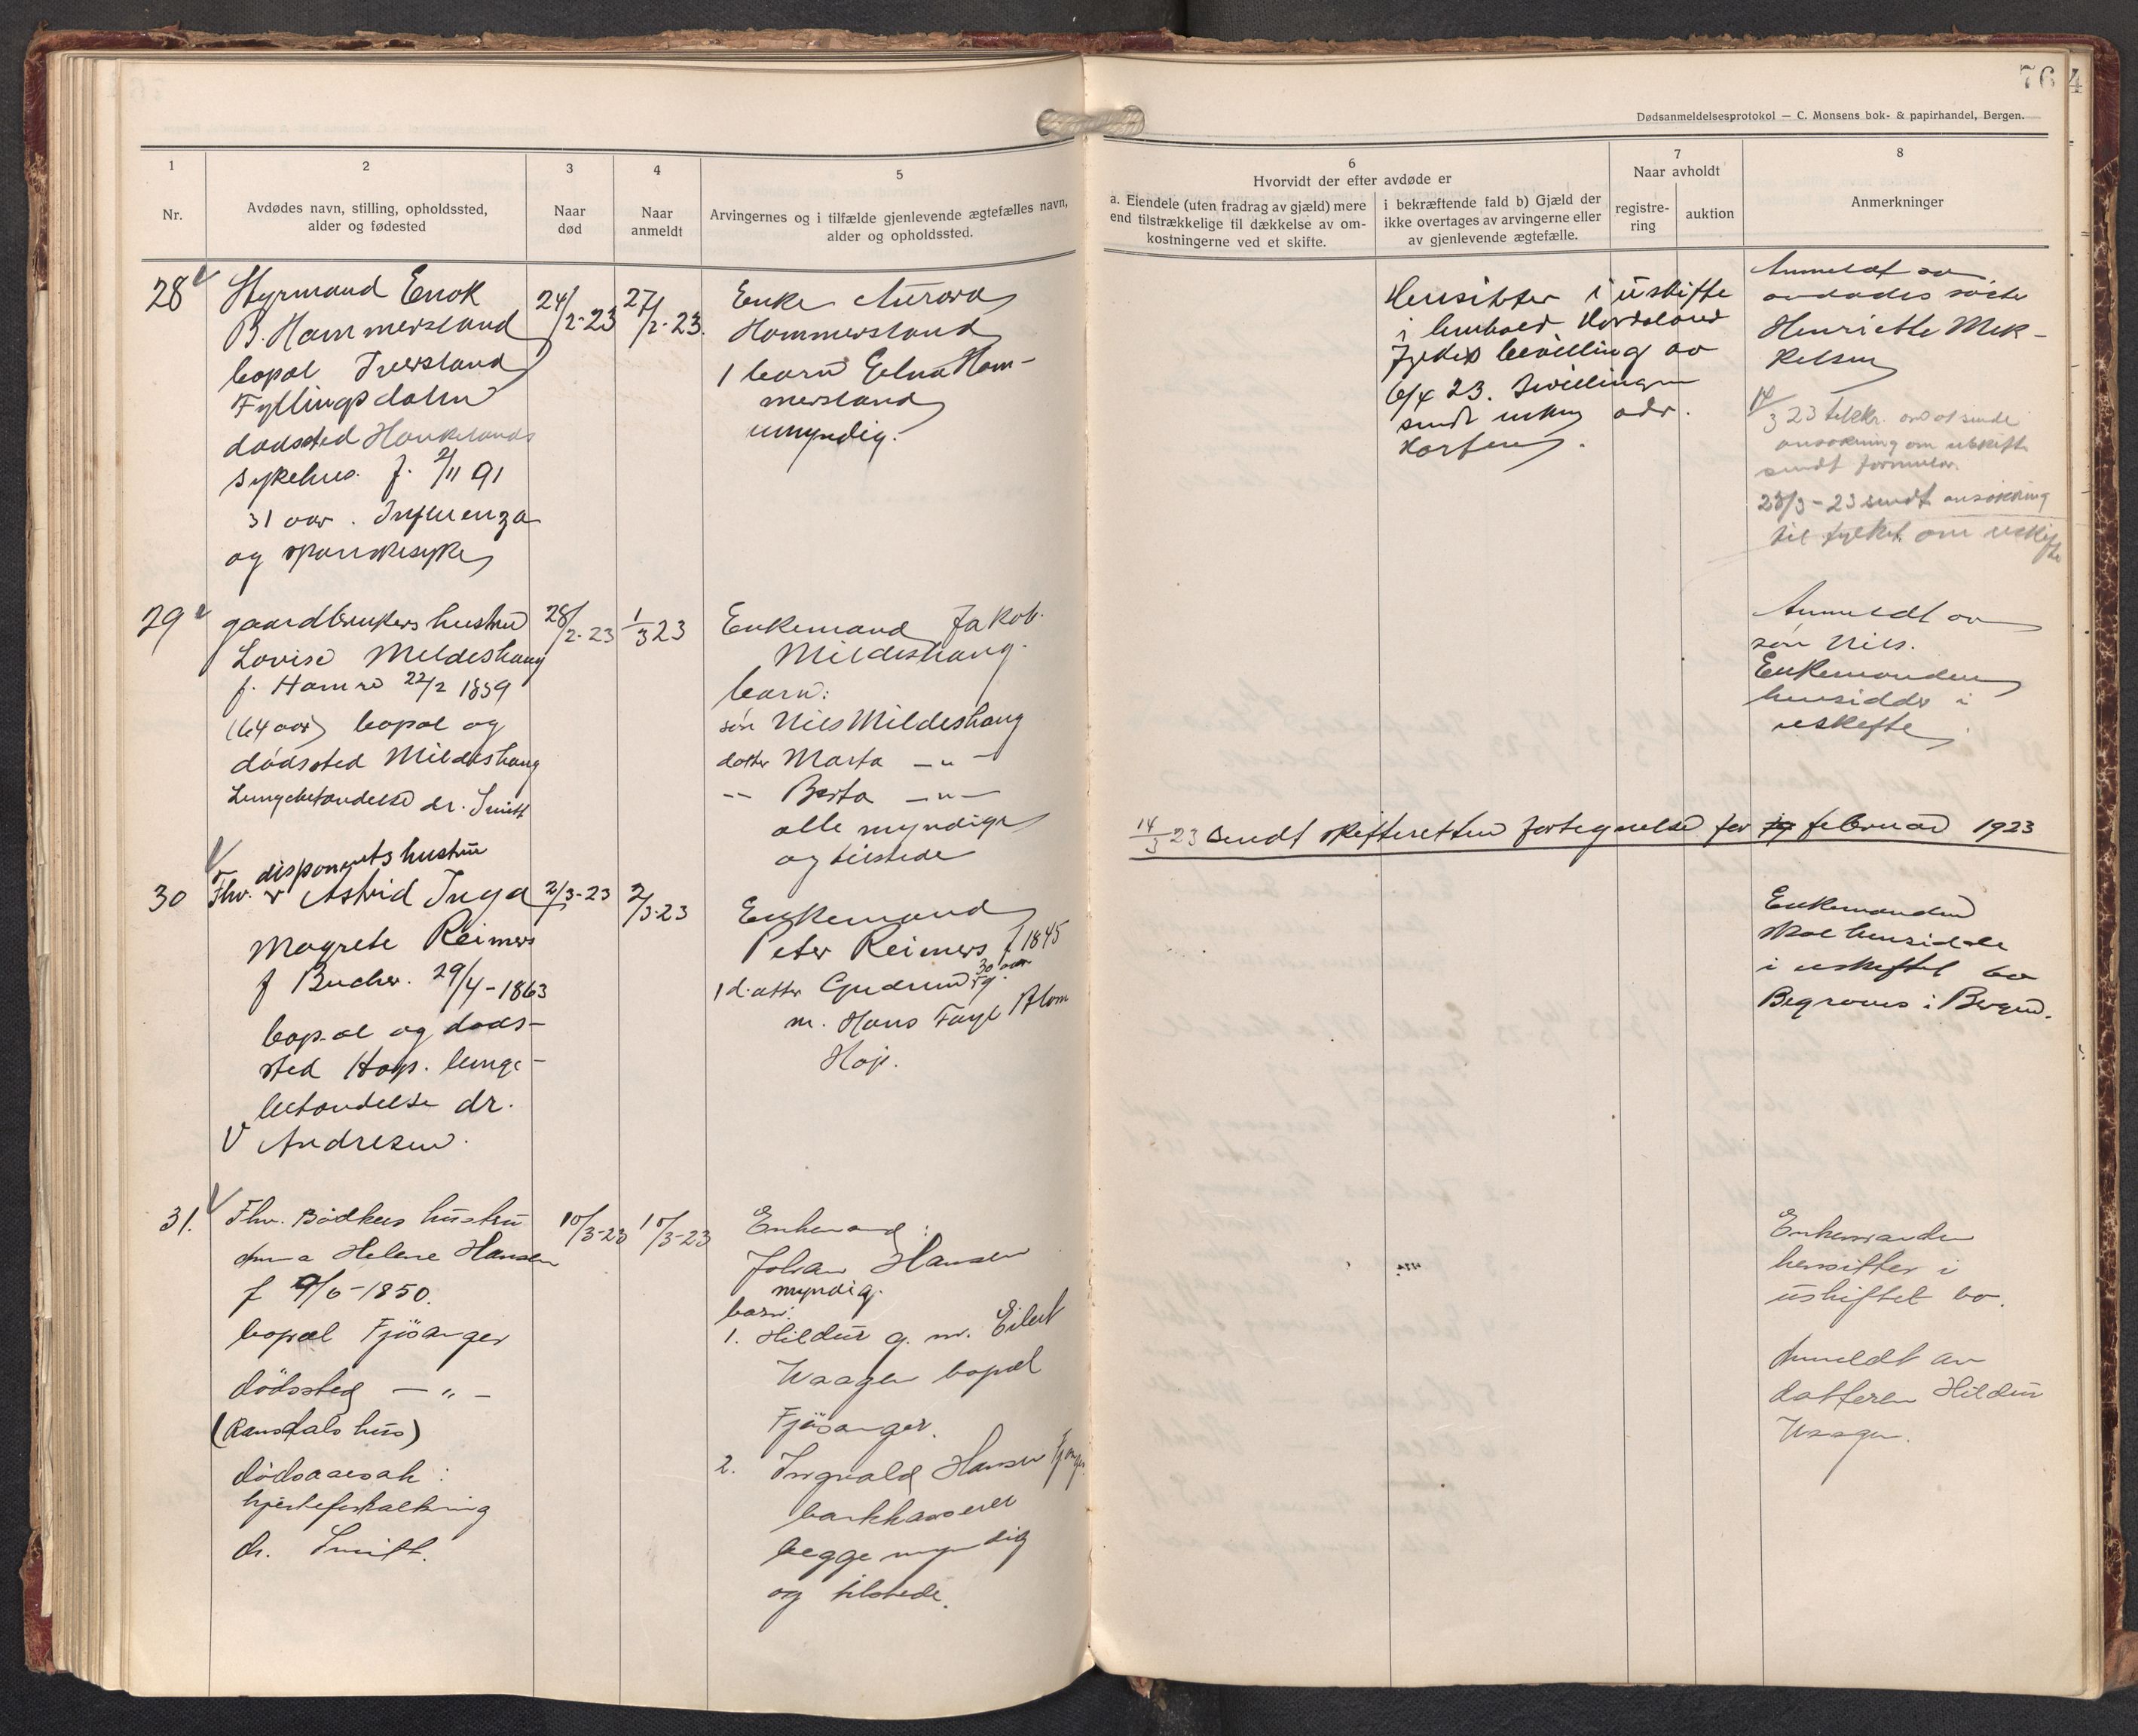 76 4
Dødsanmeldelsesprotokol — C. Monsens bok- & papirhandel, Bergen.
1
Nr.
2
Avdødes navn, stilling, opholdssted,
alder og fødested
3
Naar
død
4
Naar
anmeldt
5
Arvingernes og i tilfælde gjenlevende ægtefælles navn,
alder og opholdssted.
6
Hvorvidt der efter avdøde er
a. Eiendele (uten fradrag av gjæld) mere
end tilstrækkelige til dækkelse av om-
kostningerne ved et skifte.
i bekræftende fald b) Gjæld der
ikke overtages av arvingerne eller
av gjenlevende ægtefælle.
7
Naar avholdt
registre-
ring
auktion
8
Anmerkninger
28
Styrmand Enok
B. Hammersland
bopæl
Fyllingsdalen
dødssted Haukelands
sykehus. f. 2/11 91
31 aar. Influenza
og spanskesyke
24/2-23
27/2-23.
Enke Aurora
Hammersland
1 barn Edna Ham-
mersland
umyndig.
Hensitter i uskifte
i henhold Hordaland
fylkes bevilling av
6/4 23.
sendt enken adr.
Horten.
Anmeldt av
avdødes søster
Henriette Mik-
kelsen
14/3 23 om at sende
ansøkning om uskifte
sendt formular.
23/3-23 sendt ansøkning
til fylket om uskifte
29
gaardbrukers hustru
Lovise Mildeshaug
f. Hamre 22/2 1859
(64 aar) bopæl og
dødssted Mildeshaug
Lungebetændelse dr. Smitt
28/2-23
1/3 23
Enkemand Jakob
Mildeshaug.
barn:
søn Nils Mildeshaug
datter Marta —"—
-"- Berta —"—
alle myndige
og tilstede
Anmeldt av
søn Nils.
Enkemanden
hensidder i
uskifte
14/3 23 sendt skifteretten fortegnelse for februar 1923
30
disponents hustru
Fhv. Astrid Inga
Magrete Reimers
f Bucher. 29/4-1863
bopæl og døds-
sted Hop. lunge-
betændelse dr.
Andresen.
2/3-23
2/3-23
Enkemand
Peter Reimers f 1845
30 aar
1 datter Gudrun g.
m. Hans Faye Blom
Hop.
Enkemanden
skal hensidde
i uskiftet bo
Begraves i Bergen.
31.
Fhv. Bødkers hustru
Anna Helene Hansen
f 9/6-1850.
bopæl Fjøsanger
dødssted — " —
hus)
dødsaarsak:
hjerteforkalkning
dr. Smitt.
10/3-23
10/3-23
Enkemand:
Johan Hansen
myndig.
barn:
1. Hildur g. m. Eilert
Waagen bopæl
Fjøsanger.
2. Ingvald Hansen
bankkasserer
begge myndig
og tilstede.
Enkemanden
hensitter i
uskiftet bo.
Anmeldt av
datteren Hildur
Waagen.